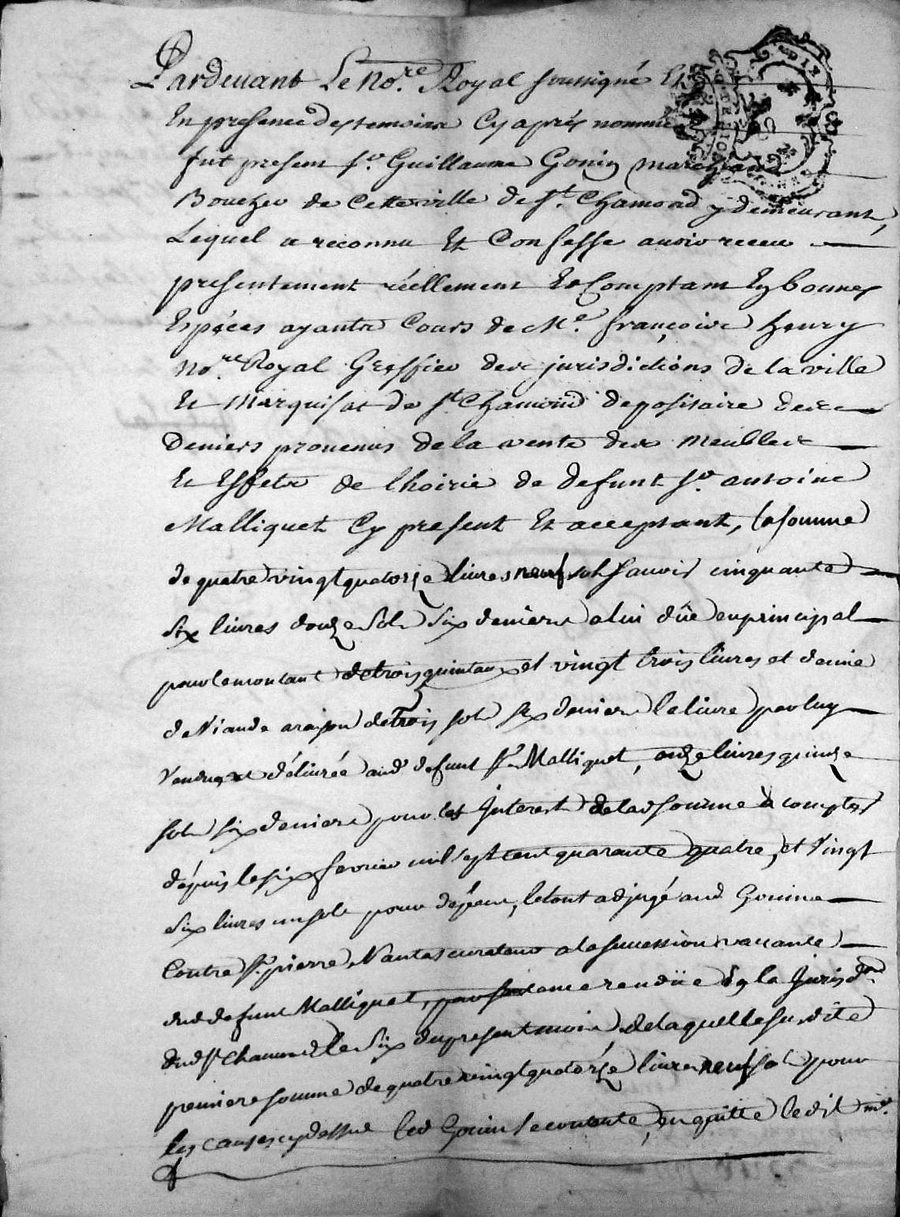 Pardevant Le No.re Royal soussigné Et
En presence des temoins Cy aprés nommés
fut present Sr. Guillaume Gonin marchand
Boucher de Cette ville de St. Chamond y demeurant,
Lequel a reconnu Et Confessé avoir receu
presentement réellement Et Comptant En bonnes
Espéces ayants Cours de Me. françois henry
No.re Royal Greffier des jurisdictions de la ville
Et Marquisat de St. Chamond depositaire des
Deniers provenus de la vente des meubles
Et Effets de l'hoirie de defunt Sr. antoine
Malliquet Cy present Et acceptant, la somme
de quatre vingt quatorze livres neuf sols sauoir cinquante
six livres douze sols six deniers a lui dûe en principal
pour le montant de trois quintaux et vingt trois livres et demie
de viande a raison de trois sols six deniers la livre par luy
vendue, et délivrée aud. defunt Sr. Malliquet, onze livres quinze
sols six deniers pour les Interest de lad. somme à compter
dépuis le six fevrier mil sept cent quarante quatre, et vingt
six livres un sols pour dépens, le tout adjugé aud. Gonin
Contre Sr. pierre Nantas curateur a la succession vaccante
dud. defunt Malliquet, par sentence rendüe En la Jurisd.on
dud. St. Chamond le six du present mois, de laquelle susdite
premiere somme de quatre vingt quatorze livres neuf sols pour
les causes cy dessus led. Gonin se contente, en quitte ledit me.